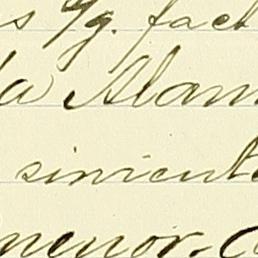 s %g. fact
la Alam
siniente
menor. C